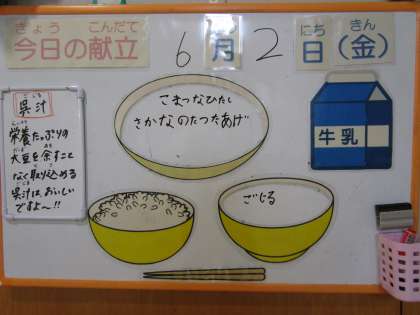 きょう こんだて
今日の献立
6月2日(金)
にち きん
こまつなひたし
さかなのたつたあげ
牛乳
ごじる
ごじる
呉汁
栄養たっぷりの
大豆を余すこと
なく取り込める
呉汁は、おいしい
ですよ～!!